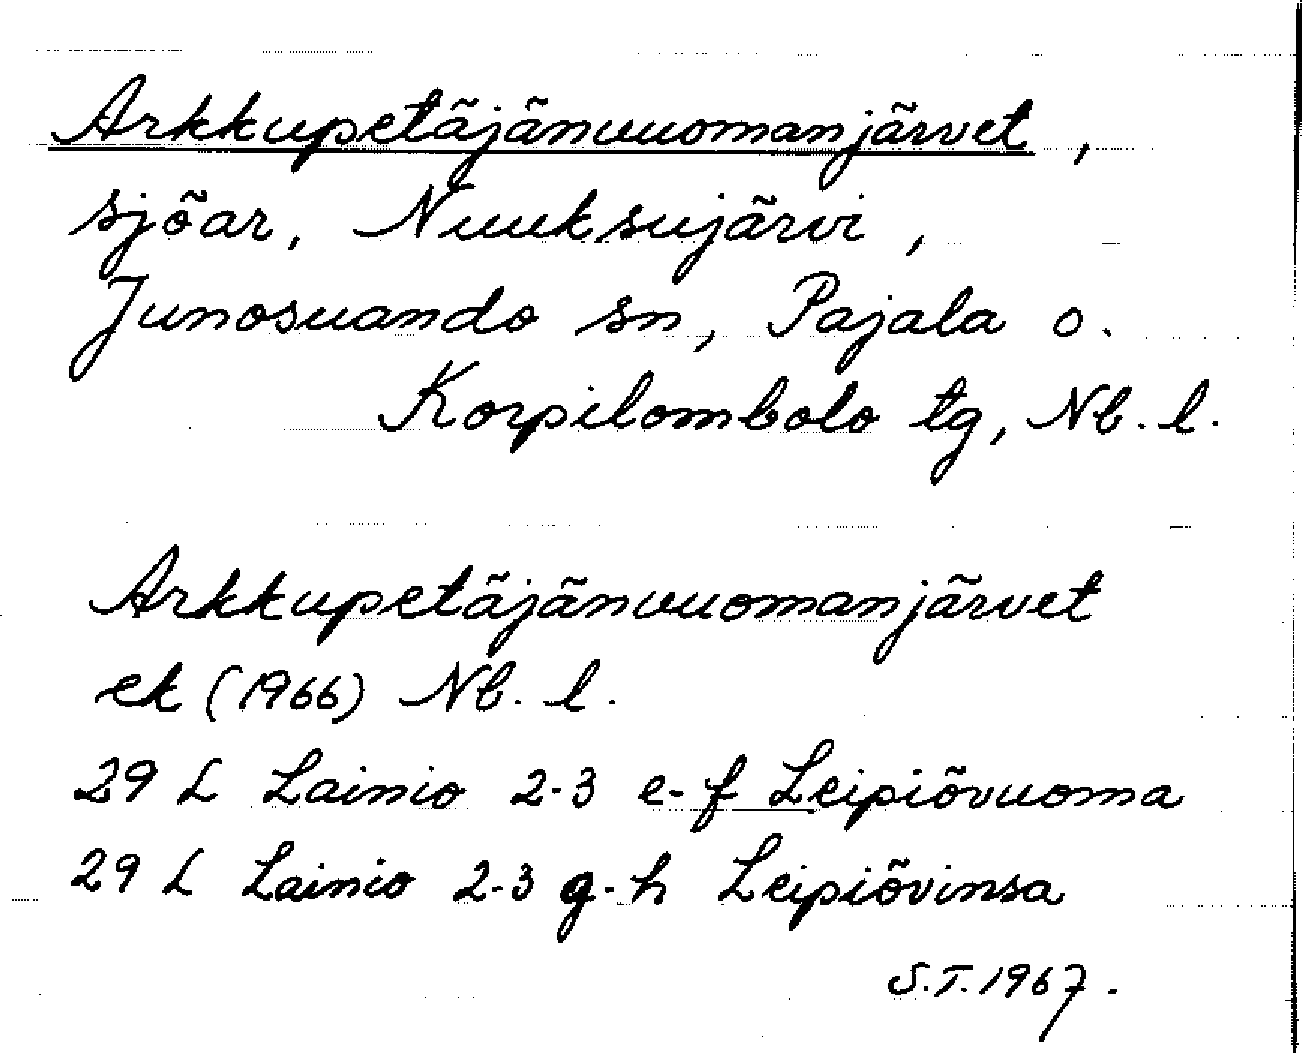 Arkkupetäjänvuomanjärvet,
sjöar, Nuuksujärvi,
Junosuando sn, Pajala o.
Korpilombolo tg, Nb. l.
Arkkupetäjänvuomanjärvet
ek (1966) Nb. l.
29 L Lainio 2-3 e-f Leipiövuoma
29 L Lainio 2-3 g-h Leipiövinsa
S.T. 1967.